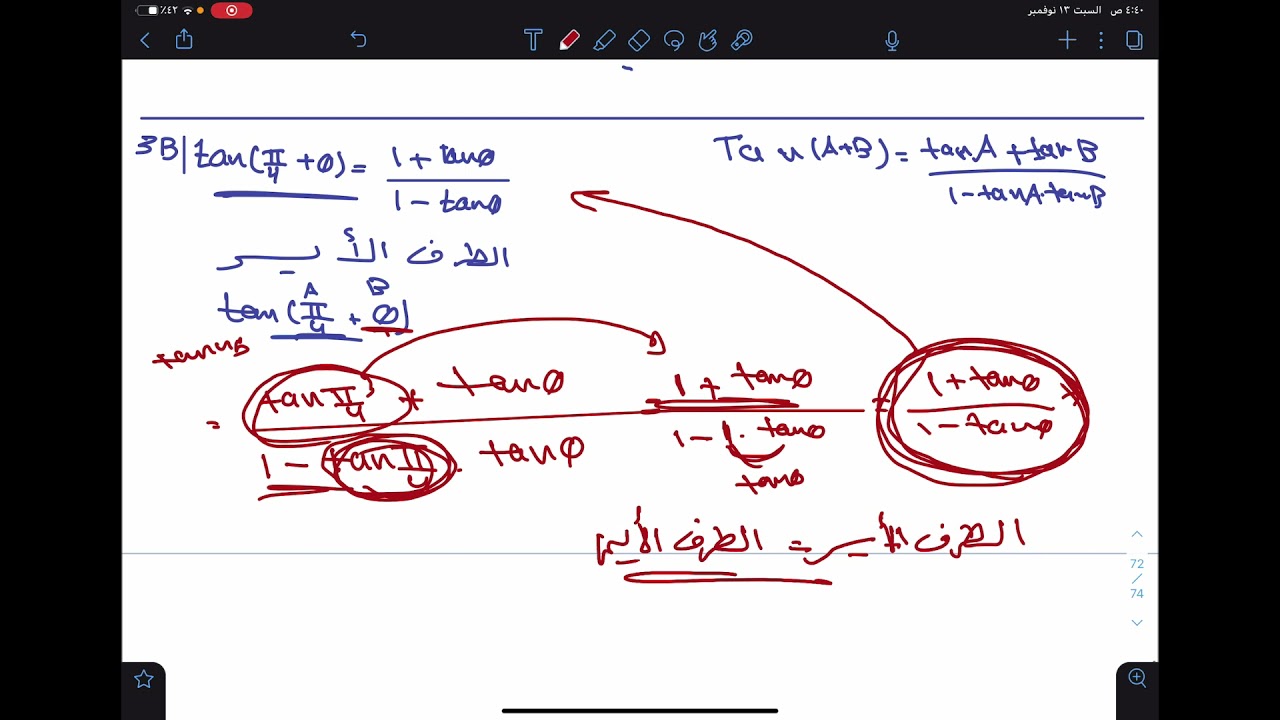 ٤:٤٠ ص السبت ١٣ نوفمبر
٪٤٢
T
3B| tan(π/4 + θ) = (1 + tanθ)/(1 - tanθ)
Tan(A+B) = (tanA + tanB)/(1 - tanA.tanB)
الطرف الأيسر
A B
tan(π/4 + θ)
= (tan π/4 + tanθ)/(1 - tan π/4 . tanθ)
(1 + tanθ)/(1 - 1. tanθ)
tanθ
= (1 + tanθ)/(1 - tanθ)
الطرف الأيسر = الطرف الأيمن
72
/
74